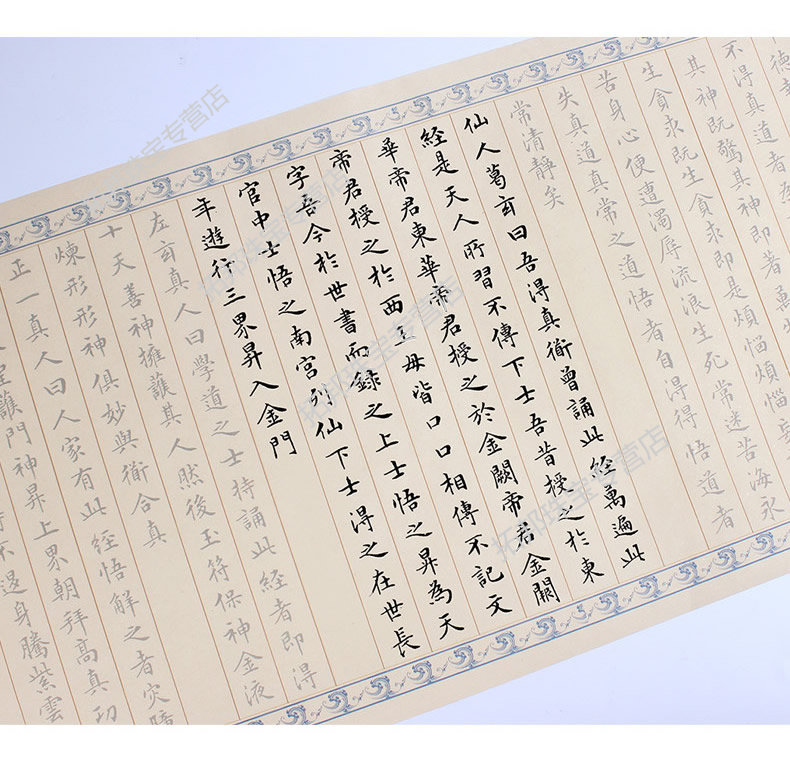 德
不得真道者
其神既驚其神即著萬
生貪求既生貪求即是煩惱煩惱妄
苦身心便遭濁辱流浪生死常迷苦海永
失真道真常之道悟者自得得悟道者
常清靜矣
仙人葛玄曰吾得真衜曾誦此經萬遍此
經是天人所習不傳下士吾昔授之於東
華帝君東華帝君授之於金闕帝君金闕
帝君授之於西王母皆口口相傳不記文
字吾今於世書而錄之上士悟之昇為天
官中士悟之南宮列仙下士得之在世長
年遊行三界昇入金門
左玄真人曰學道之士持誦此經者即得
十天善神擁護其人然後玉符保神金液
煉形形神俱妙與衜合真
正一真人曰人家有此經悟解之者災障
護門神昇上界朝拜高真功
不退身騰紫雲
珠宝专营店